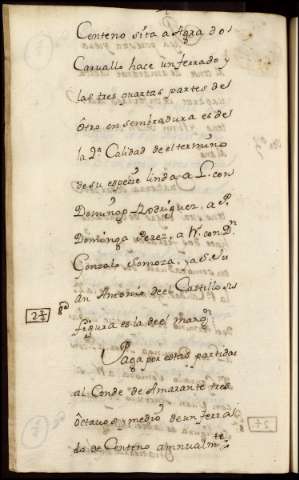 Centeno sita a Agra dos
Carvallo hace un ferrado y
las tres quartas partes de
ôtro en sembradura es de
la 2ª Calidad de el termino
de su especie linda a L. con
Doming.º Rodriguez, a P.
Dominga Perez, a N. con D.n
Gonzalo Somoza, y a S. Ju
an Antonio de el Castillo su
figura es la de el marg.n
Paga por estas partidas
al Conde de Amarante tres
ôctavos y medio de un ferra
do de Centeno annualm.te